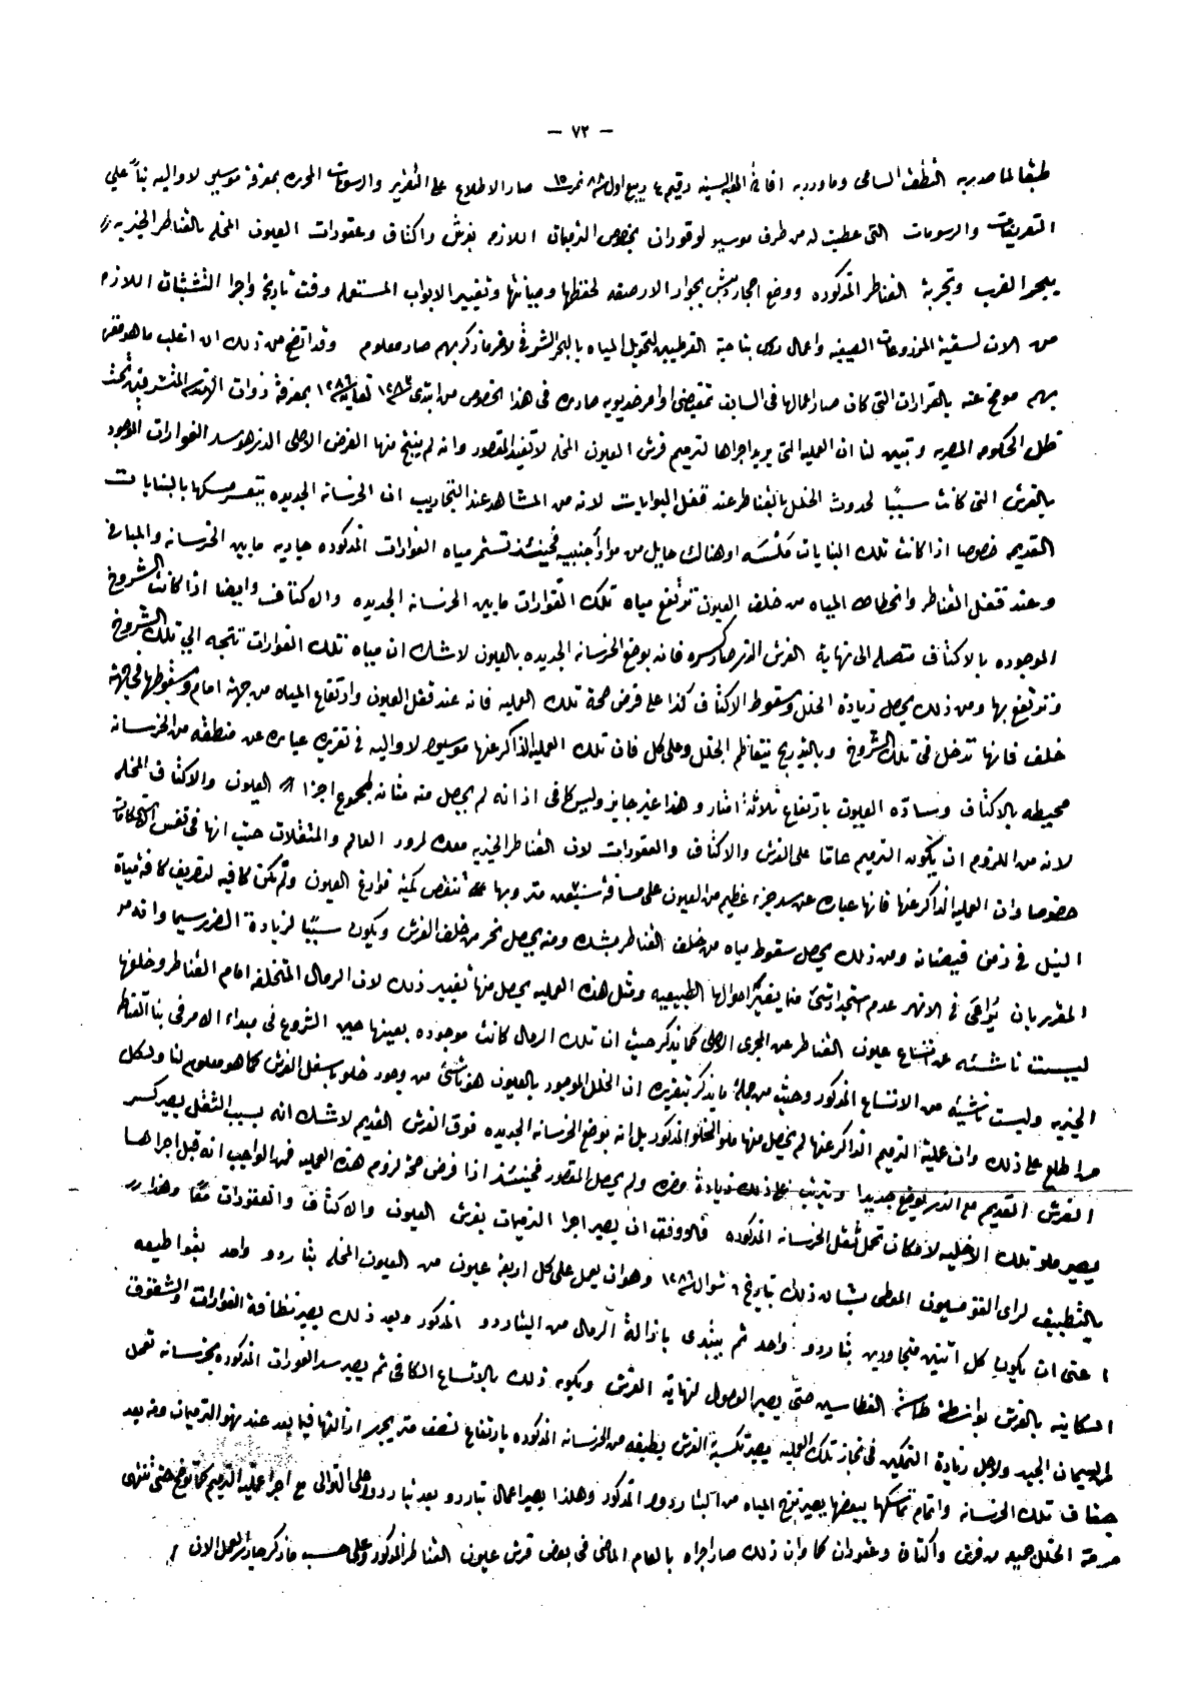 — ٧٢ —
طبقا لما صدر به النطق السامى وما ورد به افادة المعية السنيه رقيم ٤ ربيع اول ٨٨ نمرة ١٥ صار الاطلاع على التقرير والرسومات المحرره بمعرفة موسيو لاواليه بناً على
التعريفات والرسومات التى عطيت له من طرف موسيو لوقوران بخصوص الترميمات اللازمه بفرش واكتاف وعقودات العيون المخله بالقناطر الخيريه
ببحر الغرب وتجربة القناطر المذكوره ووضع احجار دبش بجوار الارصفه لحفظها وصيانتها وتغيير الابواب المستعمله وقت تاريخه واجرا التشبثات اللازمه
من الات لسقية المزروعات الصيفيه واعمال بناحية القرطيين لتحويل المياه بالبحر الشرقى لاخر ما ذكر بهم صار معلوم وقد اتضح من ذلك ان اغلب ما هو مقرر
بهم موضح عنه بالقرارات التى كان صار اعمالها فى السابق بمقتضى اوامر خديويه صادره فى هذا الخصوص من ابتدى ١٢٨٣ لغاية ١٢٨٦ بمعرفة ذوات الهندسه المتشرفين تحت
ظل الحكومه المصريه وتبين لنا ان العمليه التى يريد اجراها لترميم فرش العيون المخله لا تفيد المقصور وانه لم ينتج منها الغرض الاصلى الذى هو سد الفوارات الموجوده
بالفرش التى كانت سببًا لحدوث الخلل بالقناطر عند قفل البوابات لانه من المشاهد عند التجاريب ان الخرسانه الجديده يتعسر مسكها بالبنايات
القديمه خصوصا اذا كانت تلك البنايات او هناك حايل من مواد أجنبيه فحينئذ تستمر مياه الفوارات المذكوره جاريه ما بين الخرسانه والمبانى
وعند قفل القناطر وانحطاط المياه من خلف العيون ترتفع مياه تلك الفوارات ما بين الخرسانه الجديده والاكتاف وايضا اذا كانت الشروخ
الموجوده بالاكتاف متصله الى نهاية الفرش الذى صار كسره فانه بوضع الخرسانه الجديده بالعيون لا شك ان مياه تلك الفوارات تتجه الى تلك الشروخ
وترتفع بها ومن ذلك يحصل زيادة الخلل وسقوط الاكتاف كذا على فرض صحة تلك العمليه فانه عند قفل العيون وارتفاع المياه من جهة امام وسقوطها فى جهة
خلف فانها تدخل فى تلك الشروخ وبالتدريج يتعاظم الخلل وعلى كل فان تلك العمليه الذاكر عنها موسيو لاواليه فى تقريره عباره عن منطقه من الخرسانه
محيطه بالاكتاف وسادّه العيون بارتفاع ثلاثة امتار وهذا غير جايز وليس كافى اذ انه لم يحصل منه متانه لمجموع اجزا العيون والاكتاف المخله
لانه من اللزوم ان يكون الترميم عامًا على الفرش والاكتاف والعقودات لان القناطر الخيريه معده لمرور العالم والمثقلات حيث انها فى نفس
خصوصا وان العمليه الذاكر عنها فانها عباره عن سد جزء عظيم من العيون على مسافة متر وبها تنقص كمية فوارغ العيون ولم تكن كافيه لتصريف كافة مياة
النيل فى زمن فيضانه ومن ذلك يحصل سقوط مياه من خلف القناطر بشده ومنه يحصل نحر من خلف الفرش ويكون سببًا لزيادة الضرر سيما وانه من
المقرر بان يراعى فى الانهر عدم استجداد شئ مما يغير احوالها الطبيعيه ومثل هذه العمليه يحصل منها تغيير ذلك لان الرمال المتخلفه امام القناطر وخلفها
ليست ناشئه عن اتساع عيون القناطر عن المجرى الاصلى كما يذكر حيث ان تلك الرمال كانت موجوده بعينها حين الشروع فى مبداء الامر فى بنا القناطر
الخيريه وليست ناشيه من الاتساع المذكور وحيث من جملة ما يذكر بتقريره ان الخلل الموجود بالعيون هو ناشئ من وجود خلو باسفل الفرش كما هو معلوم لنا ولكل
من اطلع على ذلك وان عملية الترميم الذاكر عنها لم يحصل منها ملو الخلو المذكور بل انه بوضع الخرسانه الجديده فوق الفرش القديم لا شك انه بسبب الثقل يصير كسر
الفرش القديم مع الذى يوضع جديدا ويترتب على ذلك زيادة ضرره ولم يحصل المقصور فحينئذ اذا فرض صحة لزوم هذه العمليه فمن الواجب انه قبل اجراها
يصير ملو تلك الاخليه لامكان تحمل ثقل الخرسانه المذكوره فالاوفق ان يصير اجرا الترميمات بفرش العيون والاكتاف والعقودات معًا وهذا
بالتطبيق لراى القومسيون المعطى بشان ذلك بتاريخ ٦ شوال ١٢٨٦ وهو ان يعمل على كل اربعة عيون من العيون المخله بثاردو واحد بقواطيعه
اعنى ان يكون كل اثنين متجاورين بثاردو واحد ثم يبتدى بازالة الرمال من البثاردو المذكور وبعد ذلك يصير نظافة الفوارات والشقوق
الكاينه بالفرش بواسطة طاسة الغطاسين حتى يصير الوصول لنهاية الفرش ويكون ذلك بالاتساع الكافى ثم يصير سد الفورات المذكوره بخرسانه تعمل
من السيمان الجيد ولاجل زيادة التمكين فى نجاز تلك العمليه يصير تكسية الفرش بطبقه من الخرسانه المذكوره بارتفاع نصف متر يجرى ازالتها فيما بعد عند نهو الترميمات ومن بعد
جفاف تلك الخرسانه واتمام تماسكها ببعضها يصير نزح المياه من البثاردو المذكور وهكذا يصير اعمال بثاردو بعد بثاردو على التوالى مع اجرا عملية الترميم كما توضح حتى تنتهى
مرمة الخلل جميعه من فرش واكتاف وعقودات كما وان ذلك صار اجراه بالعام الماضى فى بعض فرش عيون القناطر المذكوره وعلى حسب ما ذكر جارى العمل الان